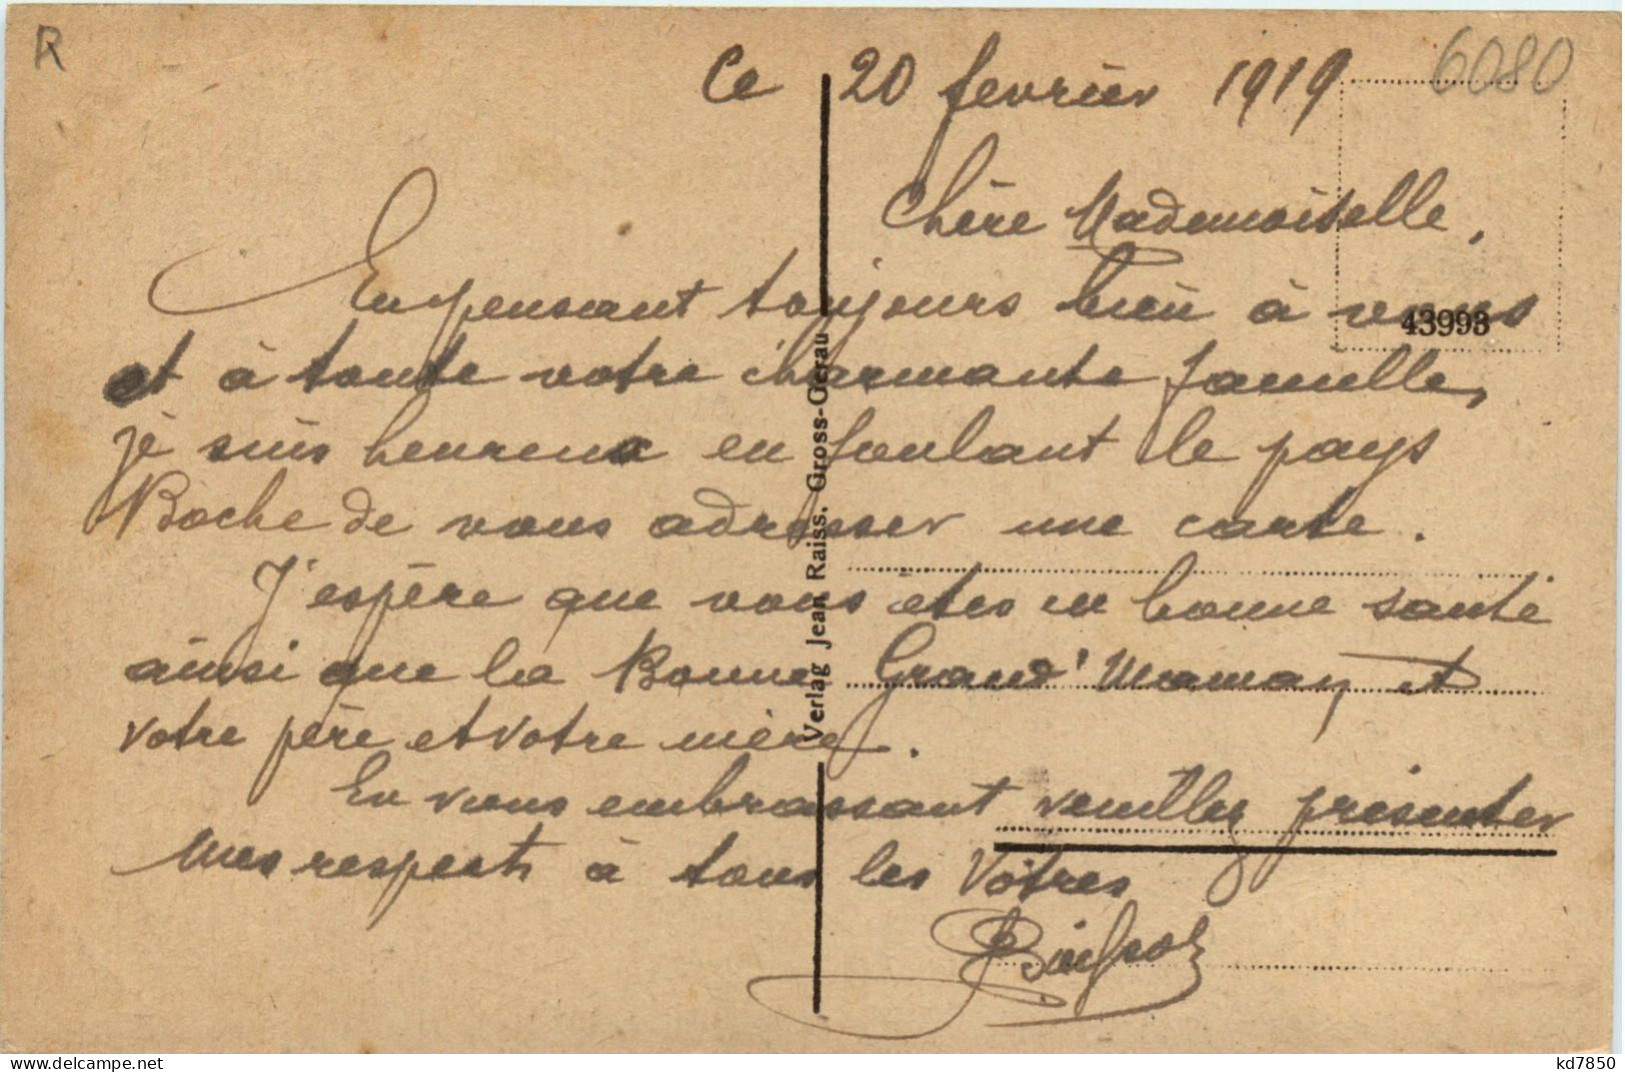 R
6080
Ce 20 fevrier 1919
Chère Mademoiselle,
En pensant toujours bien à vous
43993
et à toute votre charmante famille,
je suis heureux en foulant le pays
Boche de vous adresser une carte.
J'espère que vous êtes en bonne santé
ainsi que la Bonne Grand'Maman et
votre père et votre mère.
En vous embrassant veuillez présenter
mes respects à tous les Vôtres
Verlag Jean Raiss. Gross-Gerau
kd7850